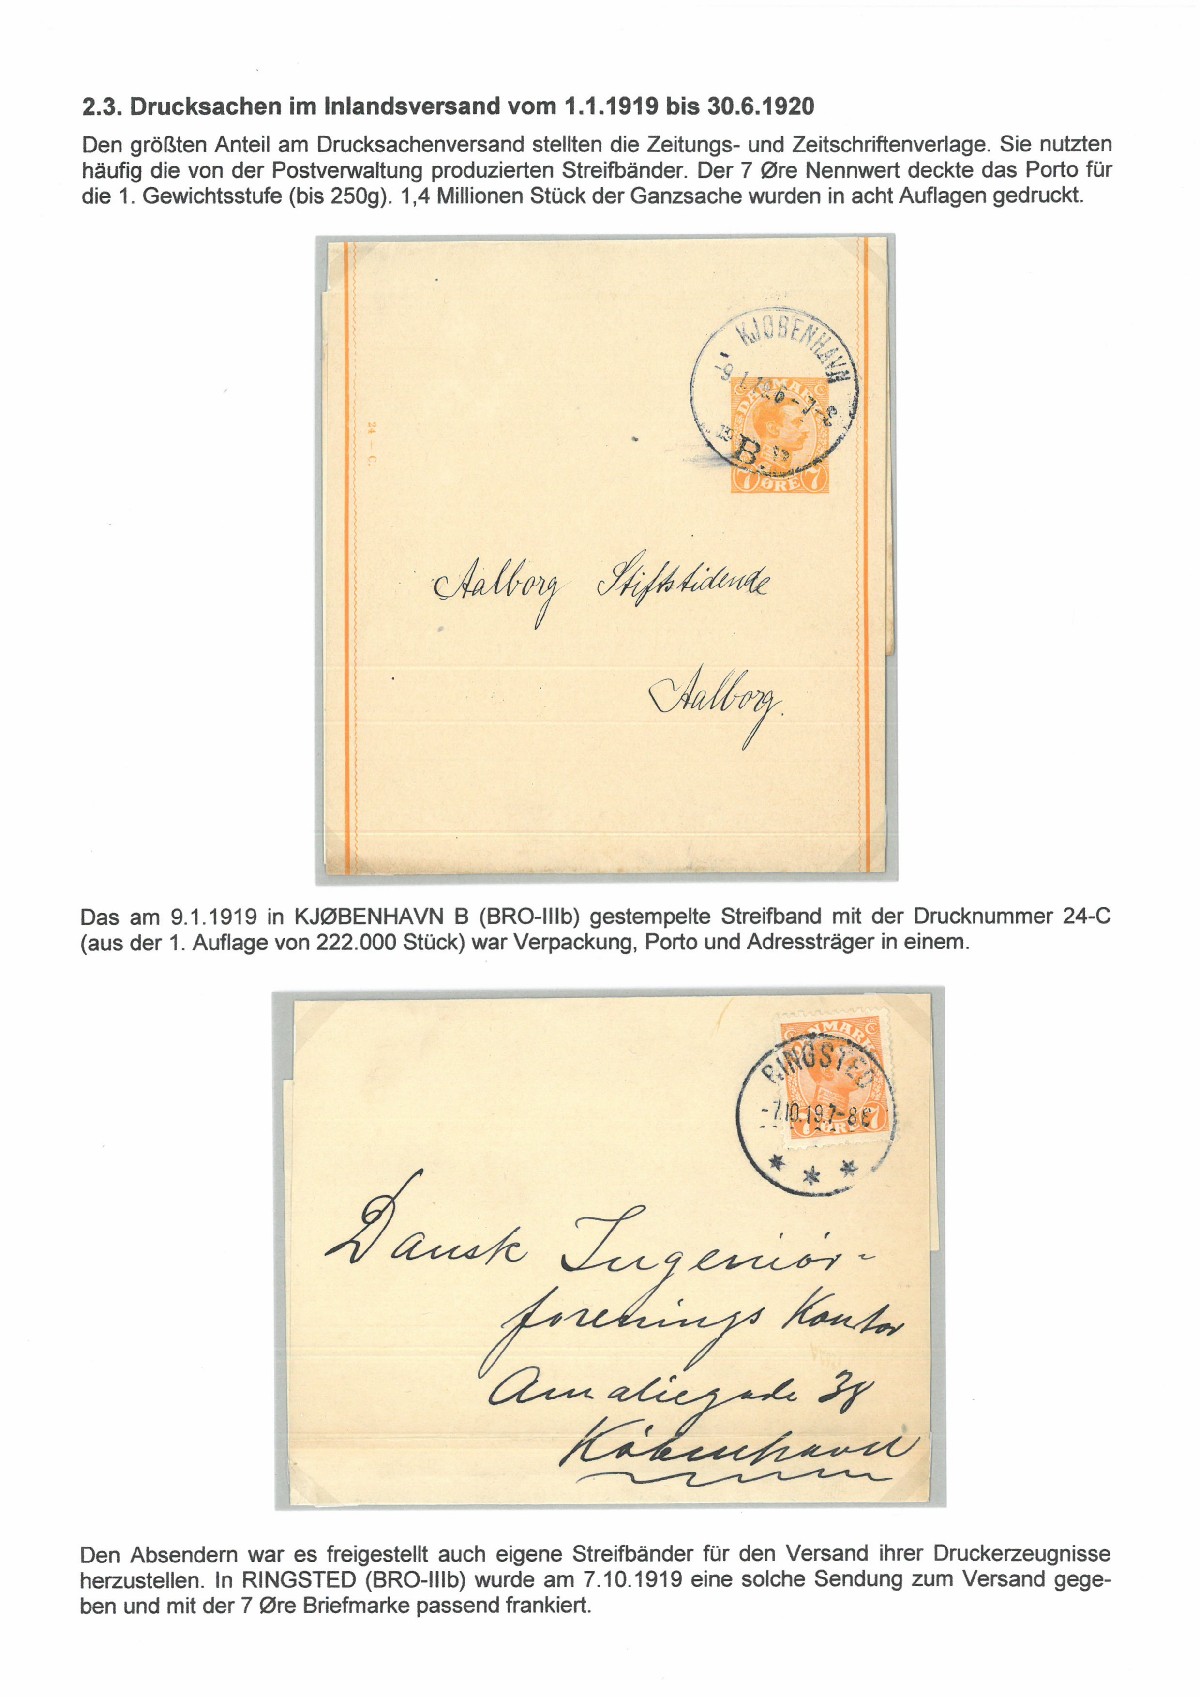 2.3. Drucksachen im Inlandsversand vom 1.1.1919 bis 30.6.1920
Den größten Anteil am Drucksachenversand stellten die Zeitungs- und Zeitschriftenverlage. Sie nutzten
häufig die von der Postverwaltung produzierten Streifbänder. Der 7 Øre Nennwert deckte das Porto für
die 1. Gewichtsstufe (bis 250g). 1,4 Millionen Stück der Ganzsache wurden in acht Auflagen gedruckt.
KJØBENHAVN
-9.1.19.6-7-E
B.
DANMARK
7 ØRE 7
24 - C
Aalborg Stiftstidende
Aalborg.
Das am 9.1.1919 in KJØBENHAVN B (BRO-IIIb) gestempelte Streifband mit der Drucknummer 24-C
(aus der 1. Auflage von 222.000 Stück) war Verpackung, Porto und Adressträger in einem.
DANMARK
RINGSTED
-7.10.19.7-8E
7 ØRE 7
* * *
Dansk Ingeniør-
forenings Kontor
Amaliegade 38
København
Den Absendern war es freigestellt auch eigene Streifbänder für den Versand ihrer Druckerzeugnisse
herzustellen. In RINGSTED (BRO-IIIb) wurde am 7.10.1919 eine solche Sendung zum Versand gege-
ben und mit der 7 Øre Briefmarke passend frankiert.